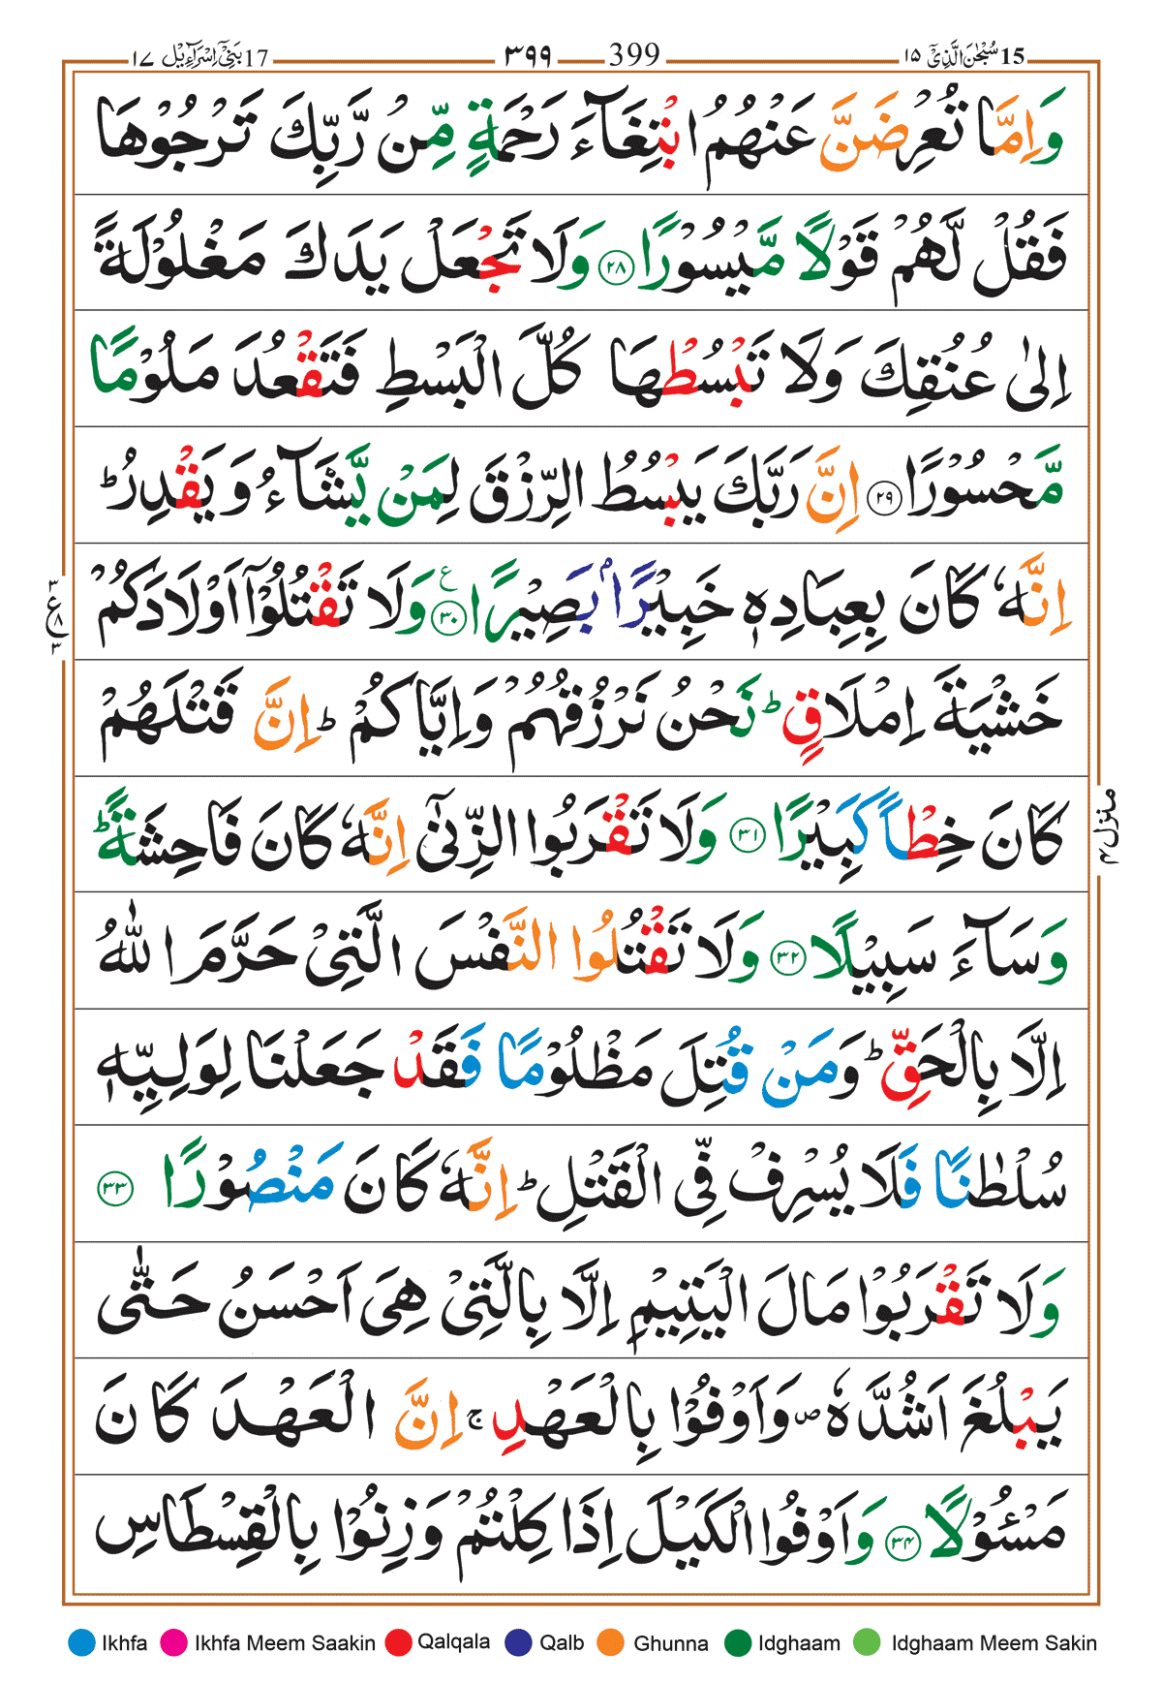 15 سُبْحٰنَ الَّذِیْٓ ۱۵
399 ۳۹۹
17 بَنِیْٓ اِسْرَآءِیْل ۱۷
وَاِمَّا تُعْرِضَنَّ عَنْهُمُ ابْتِغَآءَ رَحْمَةٍ مِّنْ رَّبِّكَ تَرْجُوْهَا
فَقُلْ لَّهُمْ قَوْلًا مَّیْسُوْرًا ﴿۲۸﴾ وَلَا تَجْعَلْ یَدَكَ مَغْلُوْلَةً
اِلٰی عُنُقِكَ وَلَا تَبْسُطْهَا كُلَّ الْبَسْطِ فَتَقْعُدَ مَلُوْمًا
مَّحْسُوْرًا ﴿۲۹﴾ اِنَّ رَبَّكَ یَبْسُطُ الرِّزْقَ لِمَنْ یَّشَآءُ وَیَقْدِرُ ؕ
اِنَّهٗ كَانَ بِعِبَادِهٖ خَبِیْرًۢا بَصِیْرًا ﴿۳۰﴾ ع وَلَا تَقْتُلُوْۤا اَوْلَادَكُمْ
خَشْیَةَ اِمْلَاقٍ ؕ نَحْنُ نَرْزُقُهُمْ وَاِیَّاكُمْ ؕ اِنَّ قَتْلَهُمْ
كَانَ خِطْاً كَبِیْرًا ﴿۳۱﴾ وَلَا تَقْرَبُوا الزِّنٰۤی اِنَّهٗ كَانَ فَاحِشَةً ؕ
وَسَآءَ سَبِیْلًا ﴿۳۲﴾ وَلَا تَقْتُلُوا النَّفْسَ الَّتِیْ حَرَّمَ اللّٰهُ
اِلَّا بِالْحَقِّ ؕ وَمَنْ قُتِلَ مَظْلُوْمًا فَقَدْ جَعَلْنَا لِوَلِیِّهٖ
سُلْطٰنًا فَلَا یُسْرِفْ فِّی الْقَتْلِ ؕ اِنَّهٗ كَانَ مَنْصُوْرًا ﴿۳۳﴾
وَلَا تَقْرَبُوْا مَالَ الْیَتِیْمِ اِلَّا بِالَّتِیْ هِیَ اَحْسَنُ حَتّٰی
یَبْلُغَ اَشُدَّهٗ ۪ وَاَوْفُوْا بِالْعَهْدِ ۚ اِنَّ الْعَهْدَ كَانَ
مَسْـُٔوْلًا ﴿۳۴﴾ وَاَوْفُوا الْكَیْلَ اِذَا كِلْتُمْ وَزِنُوْا بِالْقِسْطَاسِ
۳ ع ۸ ۳
منزل ۴
Ikhfa Ikhfa Meem Saakin Qalqala Qalb Ghunna Idghaam Idghaam Meem Sakin